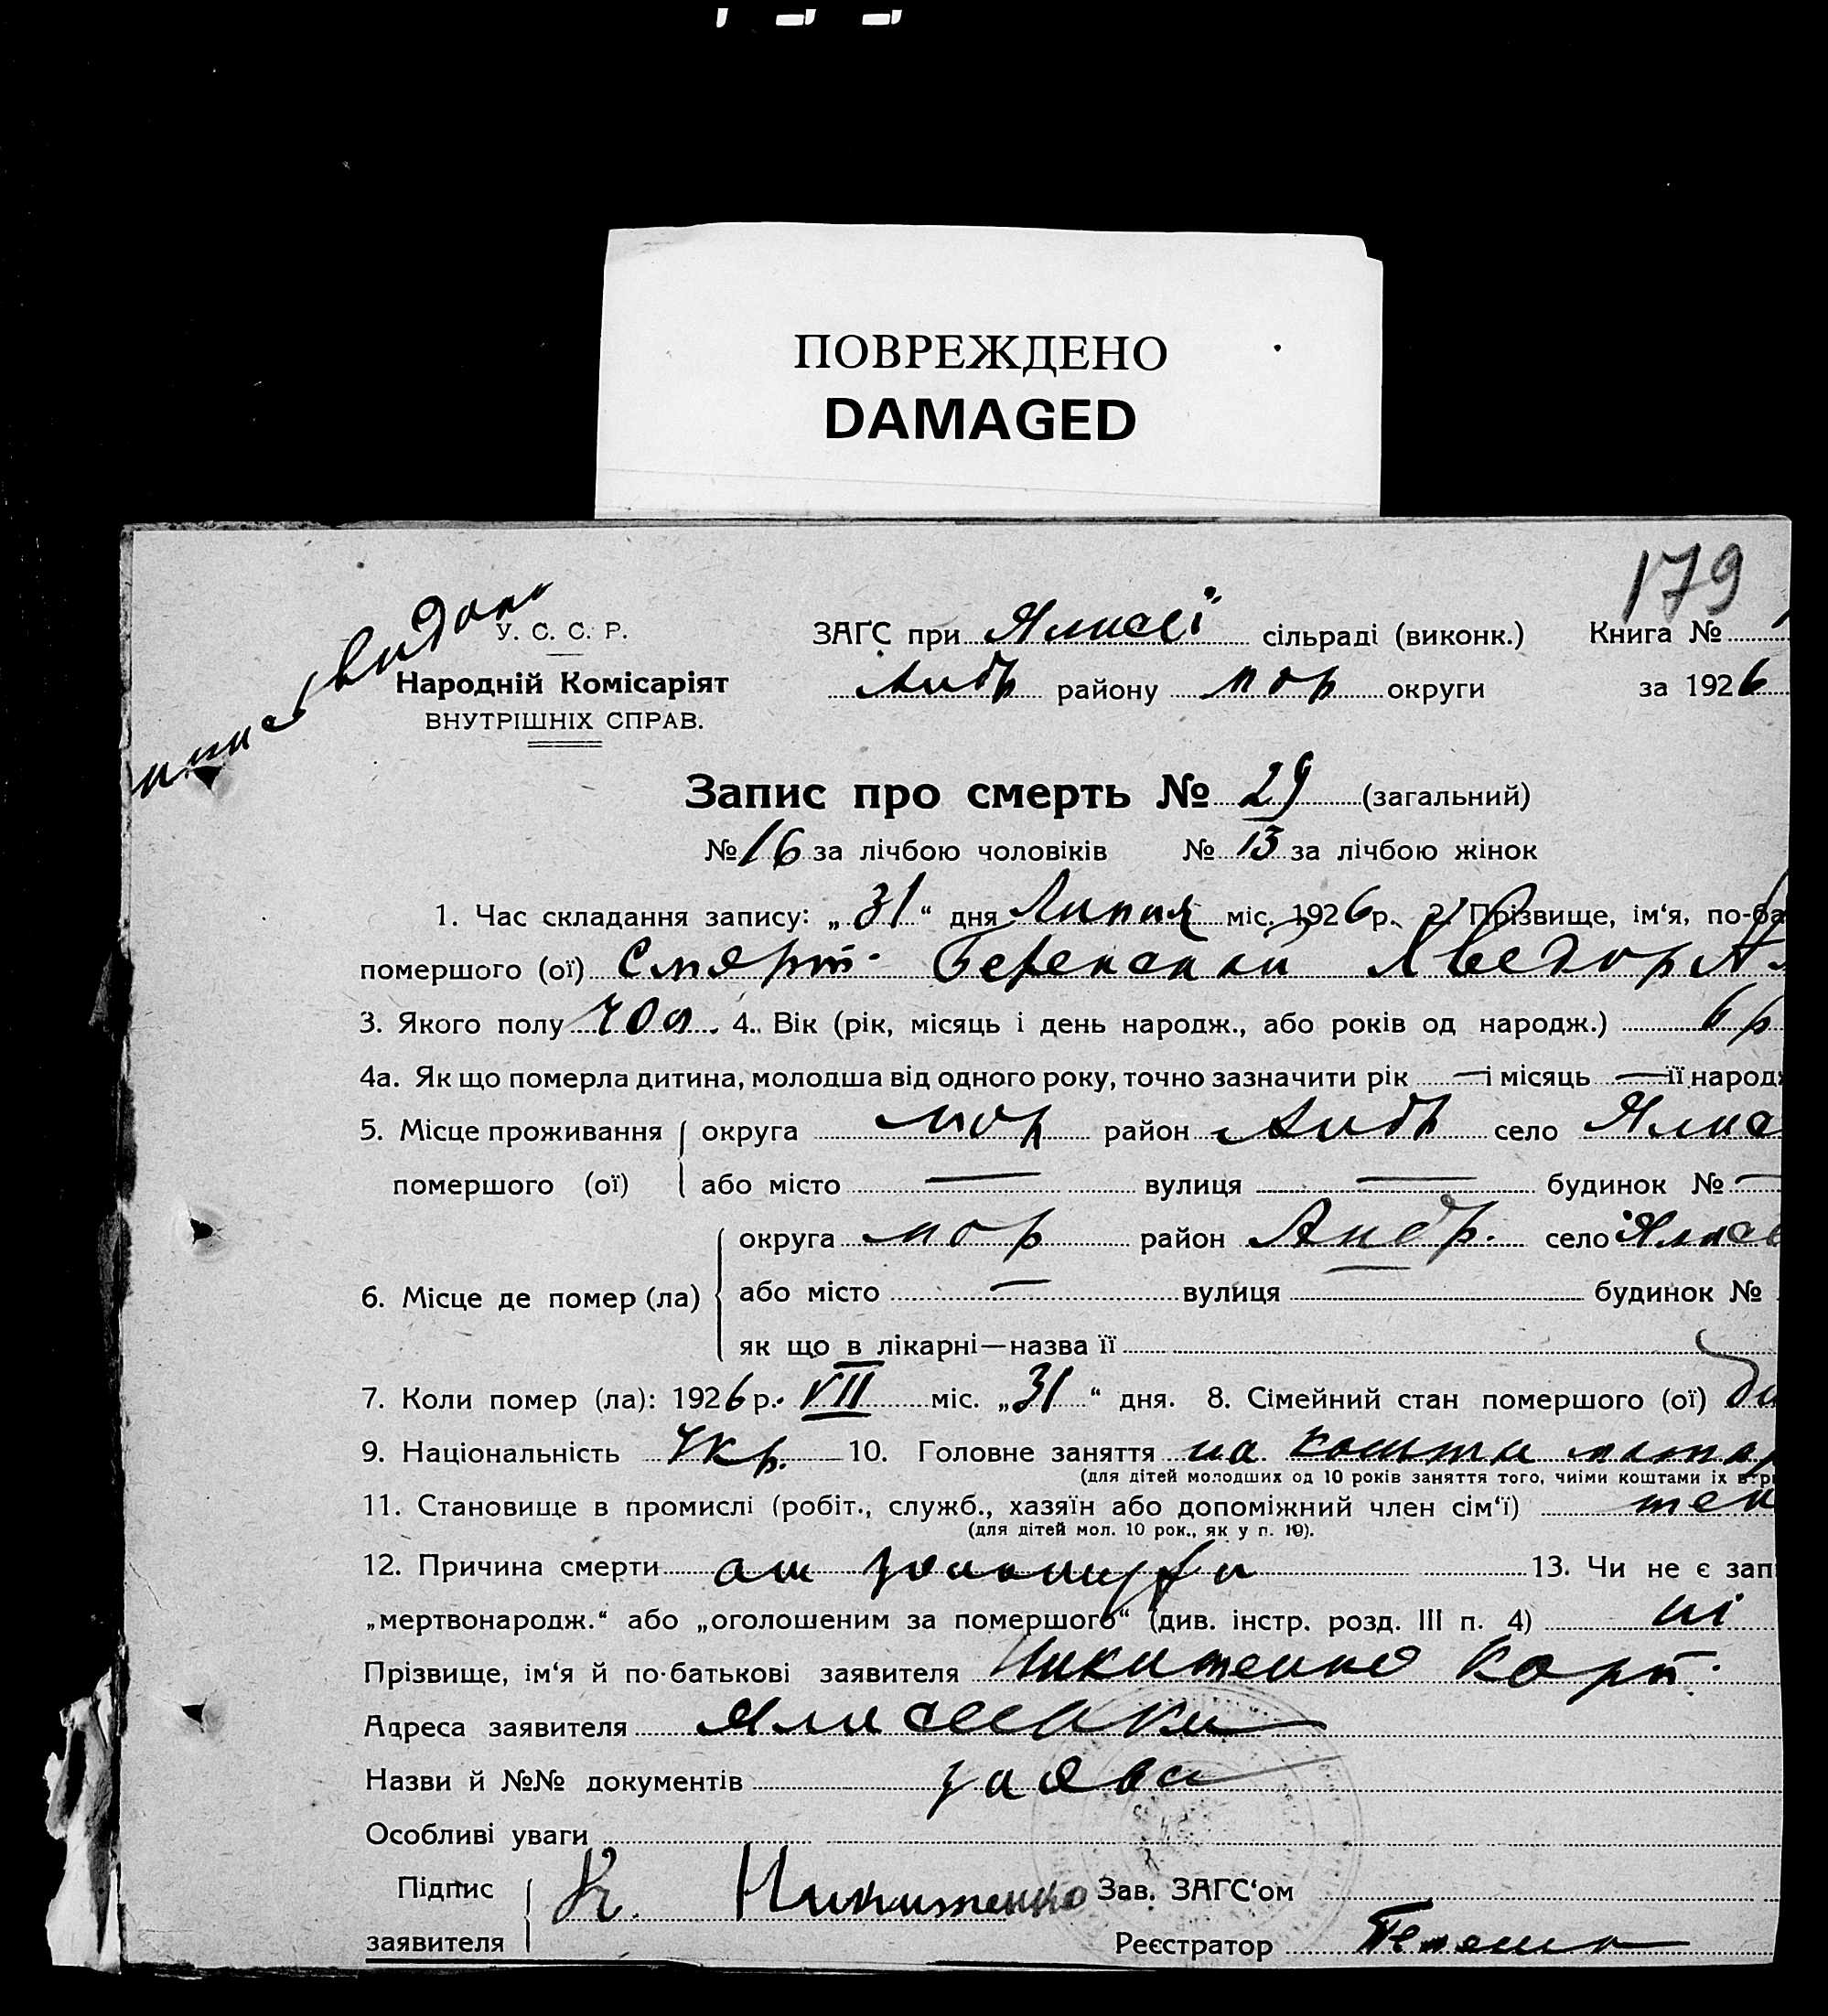 ПОВРЕЖДЕНО
DAMAGED
179
У. С. С. Р.
ЗАГС при сільраді (виконк.) Книга №
Народній Комісаріят
району округи за 1926
ВНУТРІШНІХ СПРАВ.
Запис про смерть № 29 (загальний)
№ 16 за лічбою чоловіків № 13 за лічбою жінок
1. Час складання запису: „31“ дня Липня міс. 1926 р. 2. Прізвище, ім‘я, по-ба
помершого (ої)
3. Якого полу чол. 4. Вік (рік, місяць і день народж., або років од народж.) 6 р
4а. Як що померла дитина, молодша від одного року, точно зазначити рік — і місяць — її народж
5. Місце проживання округа район село
помершого (ої) або місто — вулиця — будинок № —
округа район Андр. село
6. Місце де помер (ла) або місто — вулиця будинок №
як що в лікарні—назва її
7. Коли помер (ла): 1926 р. VII міс. „31“ дня. 8. Сімейний стан помершого (ої)
9. Національність Укр. 10. Головне заняття на кошти
(для дітей молодших од 10 років заняття того, чиїми коштами їх
11. Становище в промислі (робіт., служб., хазяїн або допоміжний член сім‘ї)
(для дітей мол. 10 рок., як у п. 10).
12. Причина смерти от 13. Чи не є зап
„мертвонародж.“ або „оголошеним за помершого“ (див. інстр. розд. III п. 4) ні
Прізвище, ім‘я й по-батькові заявителя Никитенко Карп.
Адреса заявителя
Назви й №№ документів заява
Особливі уваги
Підпис К. Никитенко Зав. ЗАГС‘ом
заявителя Реєстратор